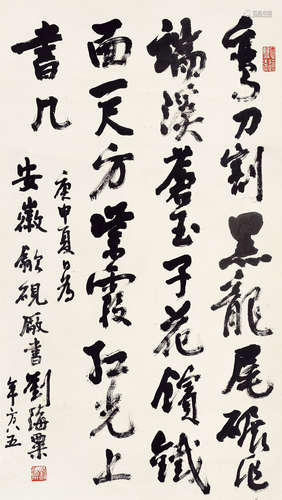 鸞刀割黑龍尾碾作
端溪蒼玉子花鑌鐵
面一尺方紫霞紅光上
書几
庚申夏日為
安徽歙硯廠書劉海粟
年方八五